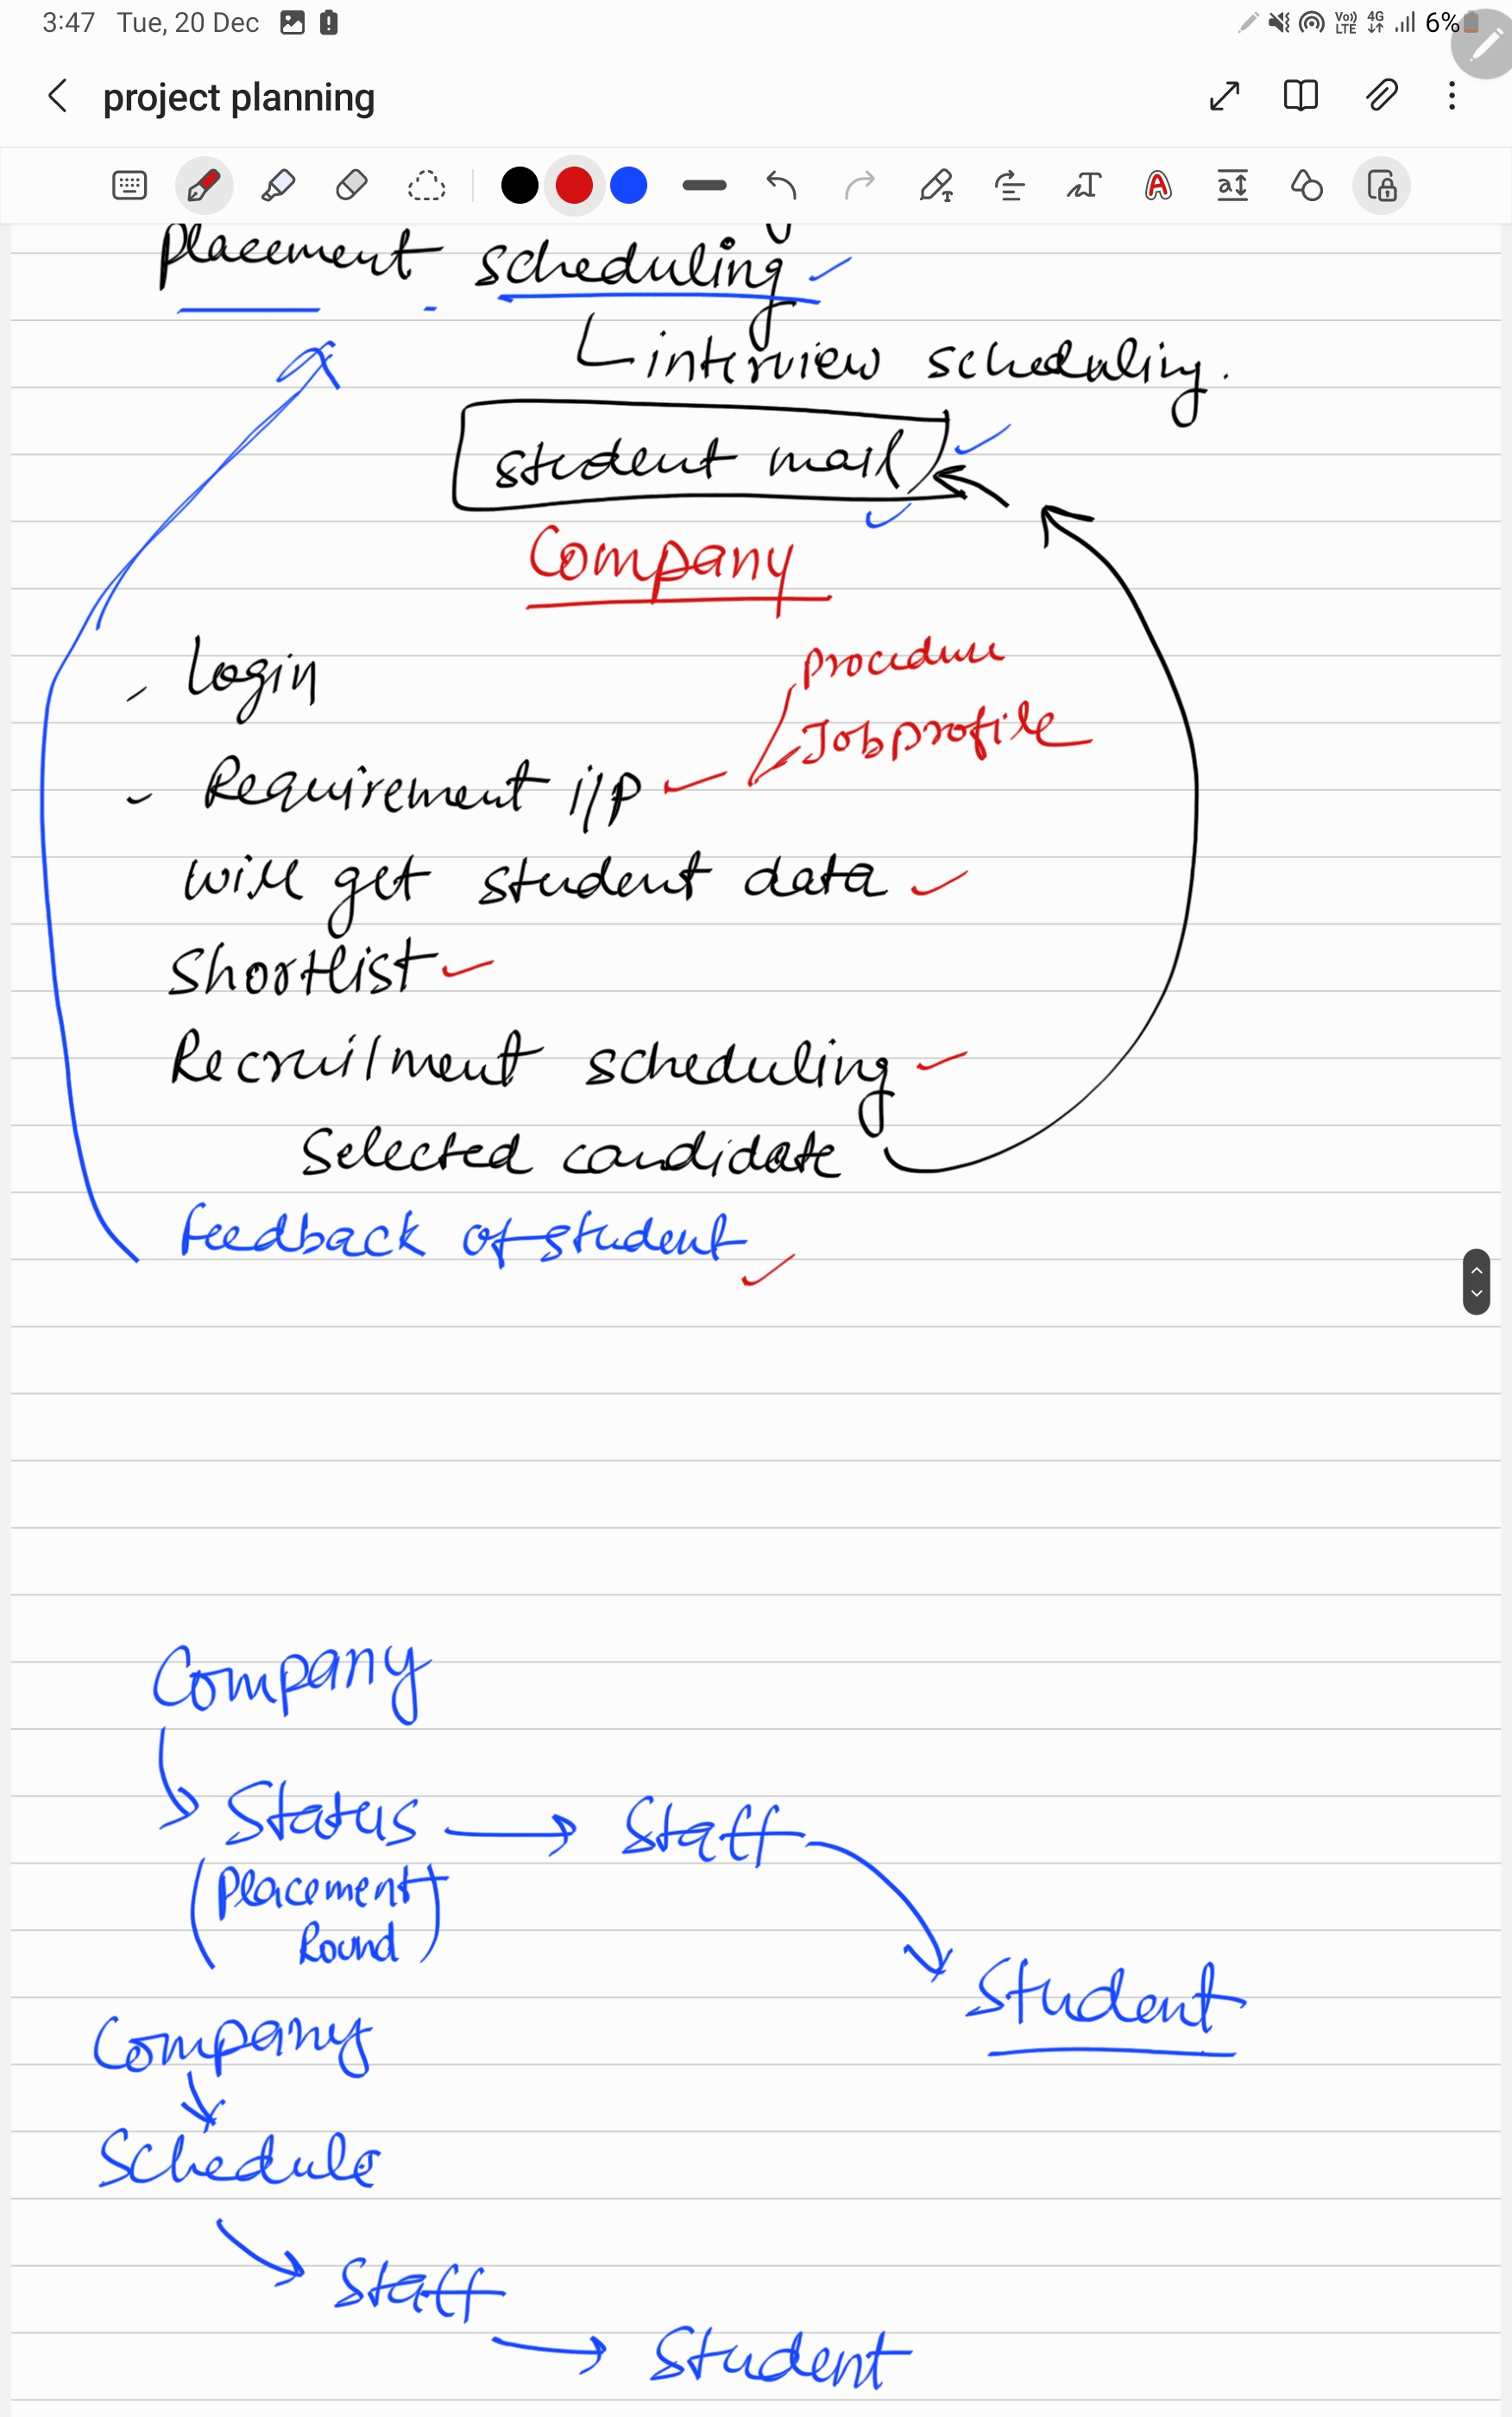 3:47 Tue, 20 Dec Vo)) LTE 4G 6%
project planning
Placement scheduling
interview scheduling.
student mail
Company
Login
procedure
Job profile
Requirement i/p
will get student data
Shortlist
Recruitment scheduling
Selected candidate
Feedback of student
Company
Status → Staff
(Placement
Round)
Student
Company
Schedule
Staff
→ Student